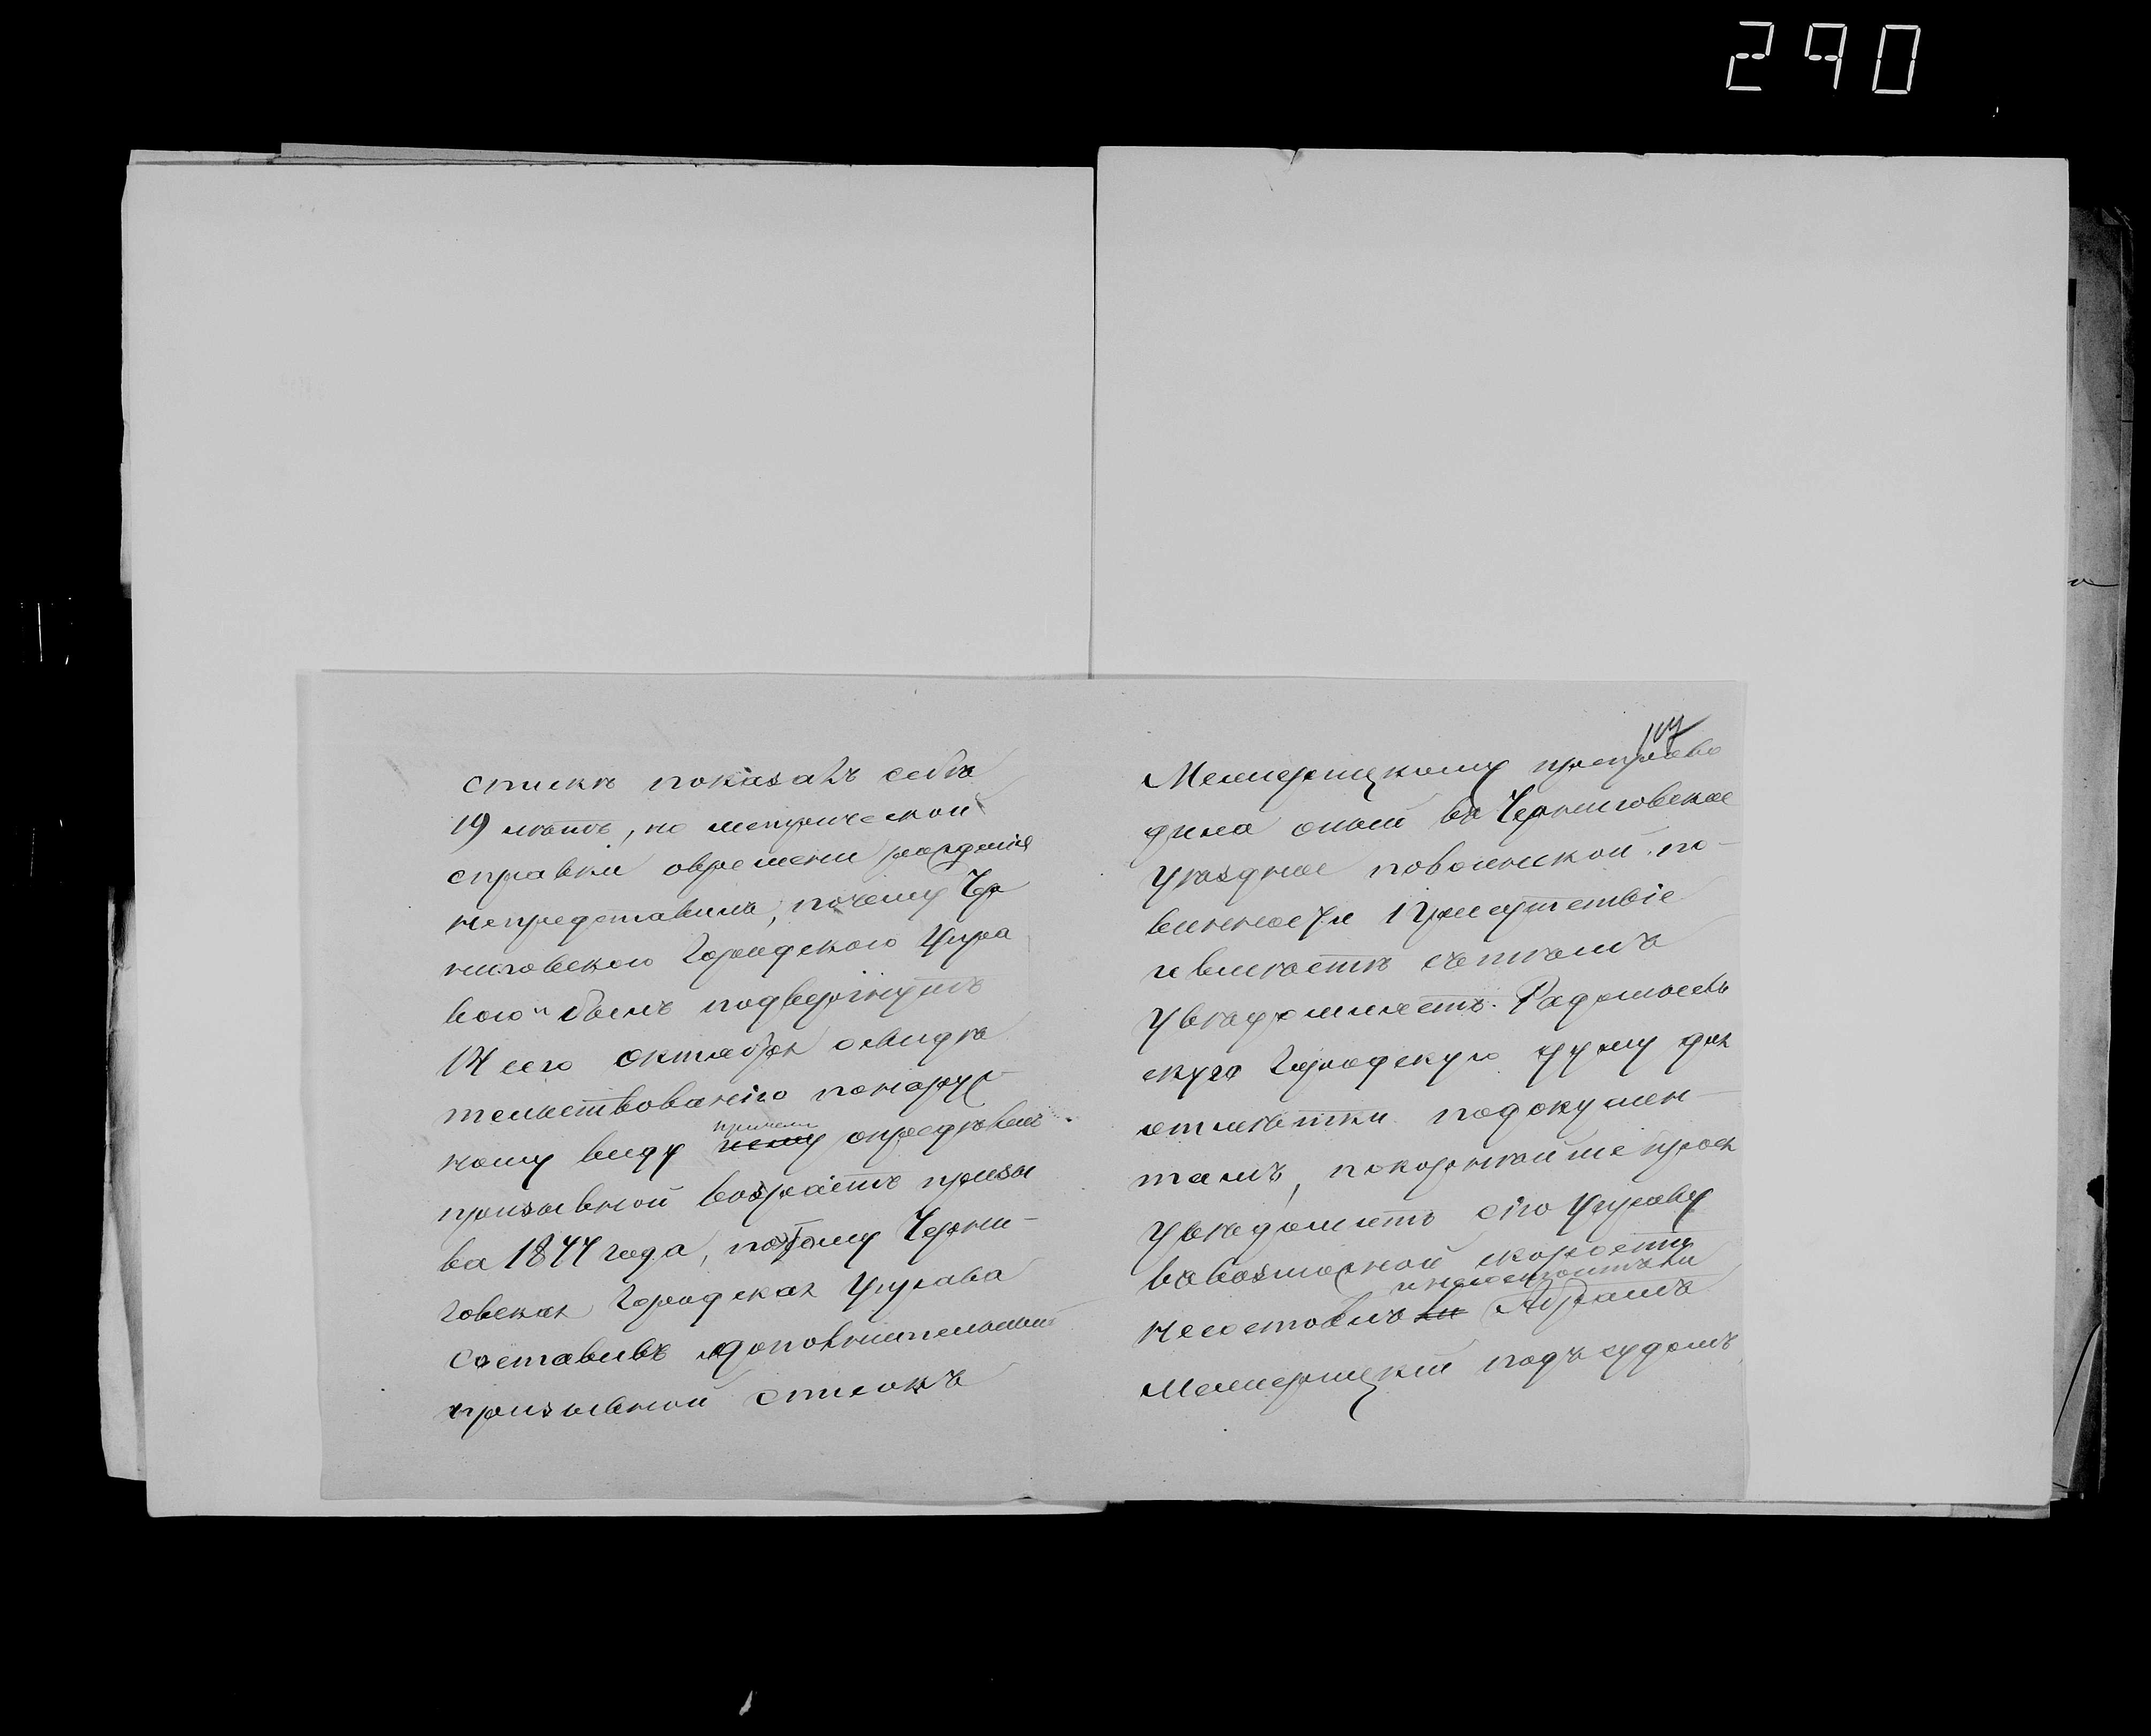 290
спискѣ показалъ себѣ
19 лѣтъ, но метрической
справки овремени рожденія
непредставилъ, почему Чер
ниговскою Городскою Упра
вою былъ подвергнутъ
14 сего Октября освидѣ
тельствованію понаруж
ному виду причемъ опредѣленъ
призывной возрастъ призы
ва 1877 года, потому Черни-
говская Городская Управа
составивъ дополнительный
призывной списокъ
107
Межерицкому препрово
дила оный въ Черниговское
Уѣздное повоинской по-
винности Присутствіе
и вмѣстѣ сътѣмъ
увѣдомляетъ Радомысль
скую Городскую думу для
отмѣтки подокумен-
тамъ, покорнѣйше прося
увѣдомить сію Управу
въвозможной скорости
несостоялъ ли и несостоитъ ли Абрамъ
Межерицкій подъ судомъ